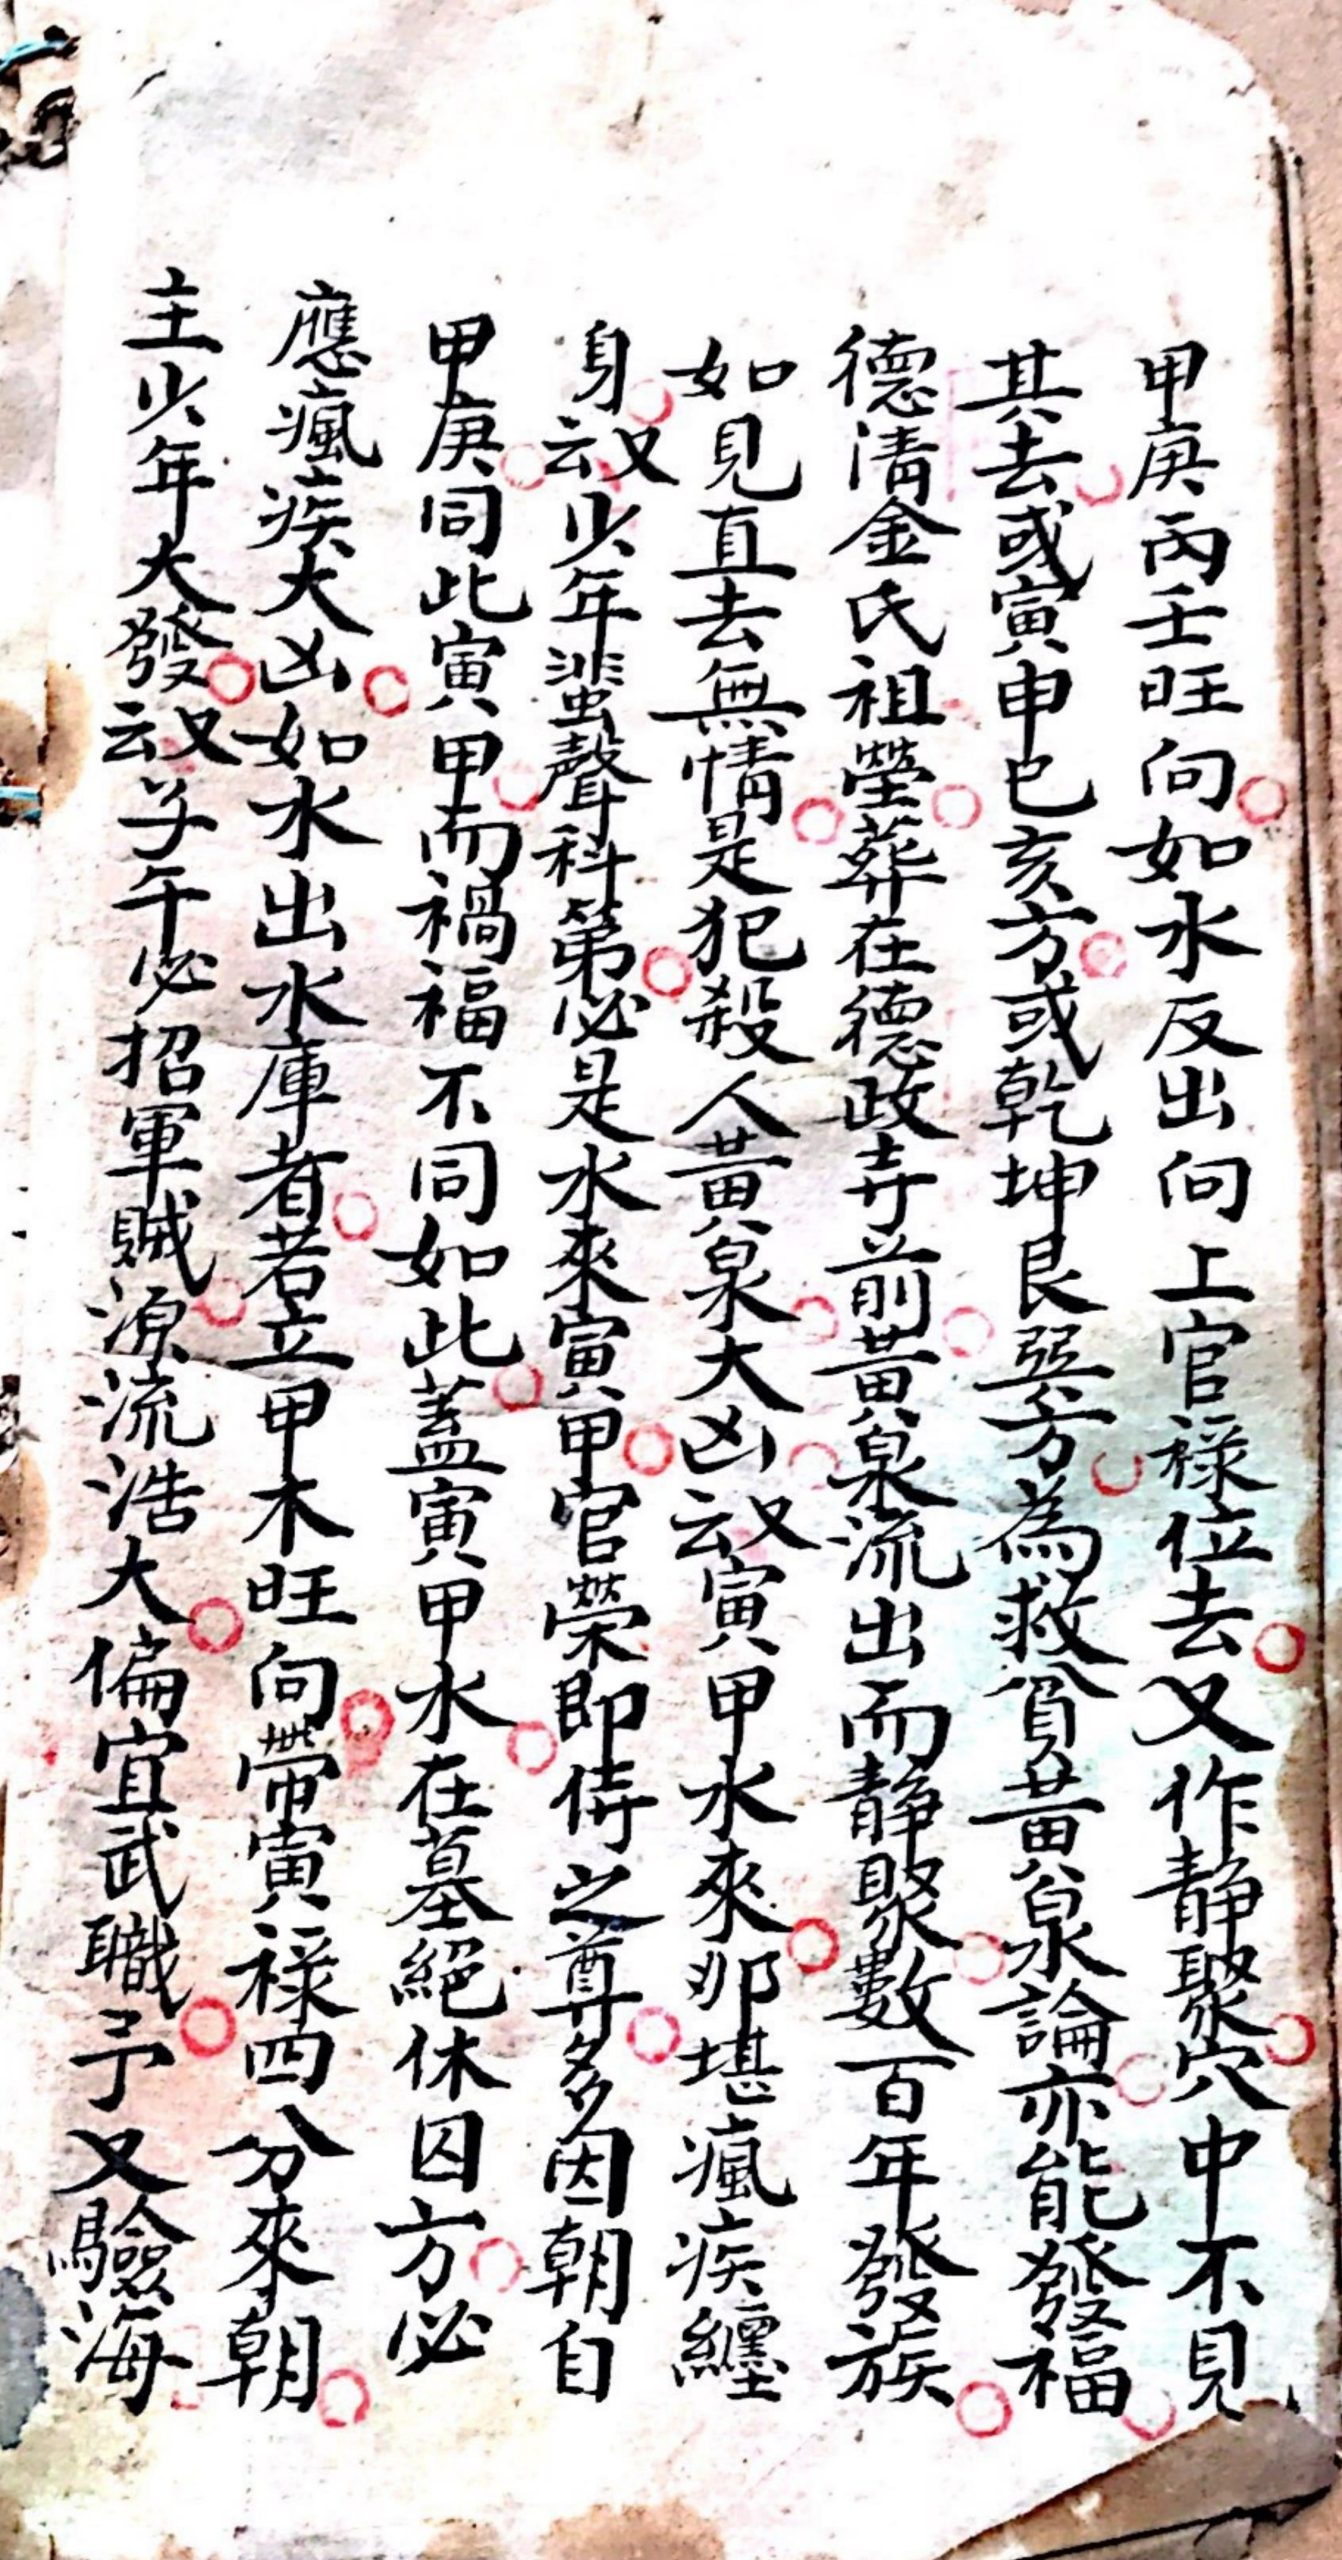 甲庚丙壬旺向如水反出向上官祿位去又作靜聚穴中不見
其去或寅申巳亥方或乾坤艮巽方為救貧黃泉論亦能發福
德清金氏祖塋葬在德政寺前黃泉流出而靜聚數百年發族
如見直去無情是犯殺人黃泉大凶又云寅甲水來那堪瘋疾纏
身又云少年蜚聲科第必是水來寅甲官榮即侍之尊多因朝自
甲庚同此寅甲而禍福不同如此蓋寅甲水在墓絕休囚方必
應瘋疾大凶如水出水庫者若立甲木旺向帶寅祿四分來朝
主少年大發又云子午必招軍賊源流浩大偏宜武職予又驗海